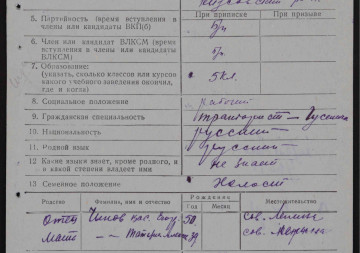 При приписке При призыве
5. Партейность (время вступления в члены или кандидаты ВКП(б) б/п
6. Член или кандидат ВЛКСМ (время вступления в члены или кандидаты ВЛКСМ) б/п
7. Образование: (указать, сколько классов или курсов какого учебного заведения окончил, где и когда) 5 кл.
8. Социальное положение рабочий
9. Гражданская специальность тракторист —
10. Национальность русский
11. Родной язык русский
12. Какие языки знает, кроме родного, и в какой степени владеет ими не знает
13 Семейное положение Холост
Родство Фамилия, имя и отчество Рождения Местожительство
Год Месяц
отец 50 сов.
Мать — — 39 сов.